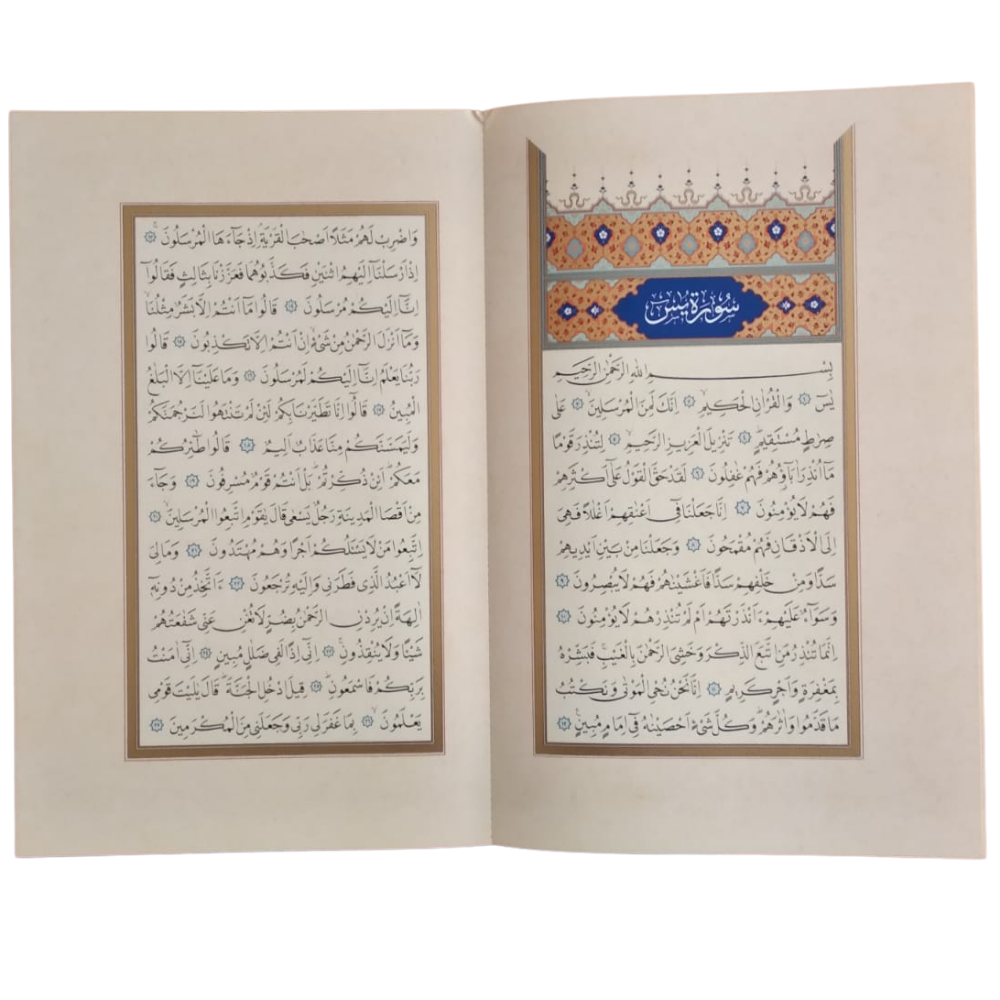 سُورَةُ يٰسٓ
بِسْمِ اللّٰهِ الرَّحْمٰنِ الرَّحِيمِ
يٰسٓ ﴿١﴾ وَالْقُرْاٰنِ الْحَكِيمِۙ ﴿٢﴾ اِنَّكَ لَمِنَ الْمُرْسَلِينَۙ ﴿٣﴾ عَلٰى
صِرَاطٍ مُسْتَقِيمٍۜ ﴿٤﴾ تَنْزِيلَ الْعَزِيزِ الرَّحِيمِۙ ﴿٥﴾ لِتُنْذِرَ قَوْمًا
مَٓا اُنْذِرَ اٰبَٓاؤُ۬هُمْ فَهُمْ غَافِلُونَ ﴿٦﴾ لَقَدْ حَقَّ الْقَوْلُ عَلٰٓى اَكْثَرِهِمْ
فَهُمْ لَا يُؤْمِنُونَ ﴿٧﴾ اِنَّا جَعَلْنَا فِٓي اَعْنَاقِهِمْ اَغْلَالًا فَهِيَ
اِلَى الْاَذْقَانِ فَهُمْ مُقْمَحُونَ ﴿٨﴾ وَجَعَلْنَا مِنْ بَيْنِ اَيْدِيهِمْ
سَدًّا وَمِنْ خَلْفِهِمْ سَدًّا فَاَغْشَيْنَاهُمْ فَهُمْ لَا يُبْصِرُونَ ﴿٩﴾
وَسَوَٓاءٌ عَلَيْهِمْ ءَاَنْذَرْتَهُمْ اَمْ لَمْ تُنْذِرْهُمْ لَا يُؤْمِنُونَ ﴿١٠﴾
اِنَّمَا تُنْذِرُ مَنِ اتَّبَعَ الذِّكْرَ وَخَشِيَ الرَّحْمٰنَ بِالْغَيْبِۚ فَبَشِّرْهُ
بِمَغْفِرَةٍ وَاَجْرٍ كَرِيمٍ ﴿١١﴾ اِنَّا نَحْنُ نُحْيِ الْمَوْتٰى وَنَكْتُبُ
مَا قَدَّمُوا وَاٰثَارَهُمْۜ وَكُلَّ شَيْءٍ اَحْصَيْنَاهُ فِٓي اِمَامٍ مُبِينٍ۟ ﴿١٢﴾
وَاضْرِبْ لَهُمْ مَثَلًا اَصْحَابَ الْقَرْيَةِۢ اِذْ جَٓاءَهَا الْمُرْسَلُونَۚ ﴿١٣﴾
اِذْ اَرْسَلْنَٓا اِلَيْهِمُ اثْنَيْنِ فَكَذَّبُوهُمَا فَعَزَّزْنَا بِثَالِثٍ فَقَالُٓوا
اِنَّٓا اِلَيْكُمْ مُرْسَلُونَ ﴿١٤﴾ قَالُوا مَٓا اَنْتُمْ اِلَّا بَشَرٌ مِثْلُنَاۙ
وَمَٓا اَنْزَلَ الرَّحْمٰنُ مِنْ شَيْءٍۙ اِنْ اَنْتُمْ اِلَّا تَكْذِبُونَ ﴿١٥﴾ قَالُوا
رَبُّنَا يَعْلَمُ اِنَّٓا اِلَيْكُمْ لَمُرْسَلُونَ ﴿١٦﴾ وَمَا عَلَيْنَٓا اِلَّا الْبَلَاغُ
الْمُبِينُ ﴿١٧﴾ قَالُٓوا اِنَّا تَطَيَّرْنَا بِكُمْۚ لَئِنْ لَمْ تَنْتَهُوا لَنَرْجُمَنَّكُمْ
وَلَيَمَسَّنَّكُمْ مِنَّا عَذَابٌ اَلِيمٌ ﴿١٨﴾ قَالُوا طَٓائِرُكُمْ
مَعَكُمْۜ اَئِنْ ذُكِّرْتُمْۜ بَلْ اَنْتُمْ قَوْمٌ مُسْرِفُونَ ﴿١٩﴾ وَجَٓاءَ
مِنْ اَقْصَا الْمَدِينَةِ رَجُلٌ يَسْعٰى قَالَ يَا قَوْمِ اتَّبِعُوا الْمُرْسَلِينَۙ ﴿٢٠﴾
اِتَّبِعُوا مَنْ لَا يَسْـَٔلُكُمْ اَجْرًا وَهُمْ مُهْتَدُونَ ﴿٢١﴾ وَمَا لِيَ
لَٓا اَعْبُدُ الَّذِي فَطَرَنِي وَاِلَيْهِ تُرْجَعُونَ ﴿٢٢﴾ ءَاَتَّخِذُ مِنْ دُونِهِٓ
اٰلِهَةً اِنْ يُرِدْنِ الرَّحْمٰنُ بِضُرٍّ لَا تُغْنِ عَنِّي شَفَاعَتُهُمْ
شَيْـًٔا وَلَا يُنْقِذُونِۚ ﴿٢٣﴾ اِنِّٓي اِذًا لَفِي ضَلَالٍ مُبِينٍ ﴿٢٤﴾ اِنِّٓي اٰمَنْتُ
بِرَبِّكُمْ فَاسْمَعُونِۜ ﴿٢٥﴾ قِيلَ ادْخُلِ الْجَنَّةَۜ قَالَ يَا لَيْتَ قَوْمِي
يَعْلَمُونَۙ ﴿٢٦﴾ بِمَا غَفَرَ لِي رَبِّي وَجَعَلَنِي مِنَ الْمُكْرَمِينَ ﴿٢٧﴾